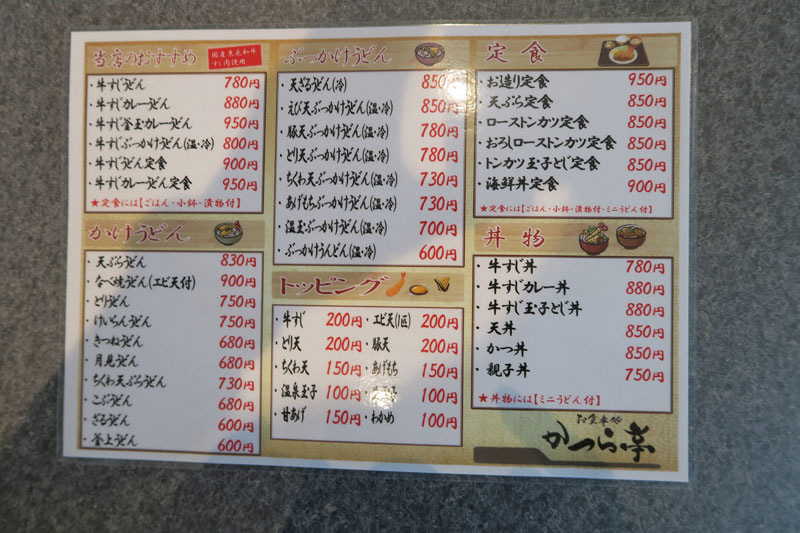 当店のおすすめ
国産黒毛和牛
すじ肉使用
・牛すじうどん 780円
・牛すじカレーうどん 880円
・牛すじ釜玉カレーうどん 950円
・牛すじぶっかけうどん(温・冷) 800円
・牛すじうどん定食 900円
・牛すじカレーうどん定食 950円
★定食には【ごはん・小鉢・漬物付】
かけうどん
・天ぷらうどん 830円
・なべ焼うどん(エビ天付) 900円
・とりうどん 750円
・けいらんうどん 750円
・きつねうどん 680円
・月見うどん 680円
・ちくわ天ぷらうどん 730円
・こぶうどん 680円
・ざるうどん 600円
・釜上うどん 600円
ぶっかけうどん
・天ざるうどん(冷) 850円
・えび天ぶっかけうどん(温・冷) 850円
・豚天ぶっかけうどん(温・冷) 780円
・とり天ぶっかけうどん(温・冷) 780円
・ちくわ天ぶっかけうどん(温・冷) 730円
・あげもちぶっかけうどん(温・冷) 730円
・温玉ぶっかけうどん(温・冷) 700円
・ぶっかけうんどん(温・冷) 600円
トッピング
・牛すじ 200円 ・エビ天(1匹) 200円
・とり天 200円 ・豚天 200円
・ちくわ天 150円 ・あげもち 150円
・温泉玉子 100円 100円
・甘あげ 150円 ・わかめ 100円
定食
・お造り定食 950円
・天ぷら定食 850円
・ローストンカツ定食 850円
・おろしローストンカツ定食 850円
・トンカツ玉子とじ定食 850円
・海鮮丼定食 900円
★定食には【ごはん・小鉢・漬物付・ミニうどん付】
丼物
・牛すじ丼 780円
・牛すじカレー丼 880円
・牛すじ玉子とじ丼 880円
・天丼 850円
・かつ丼 850円
・親子丼 750円
★丼物には【ミニうどん付】
お食事処
かつら亭